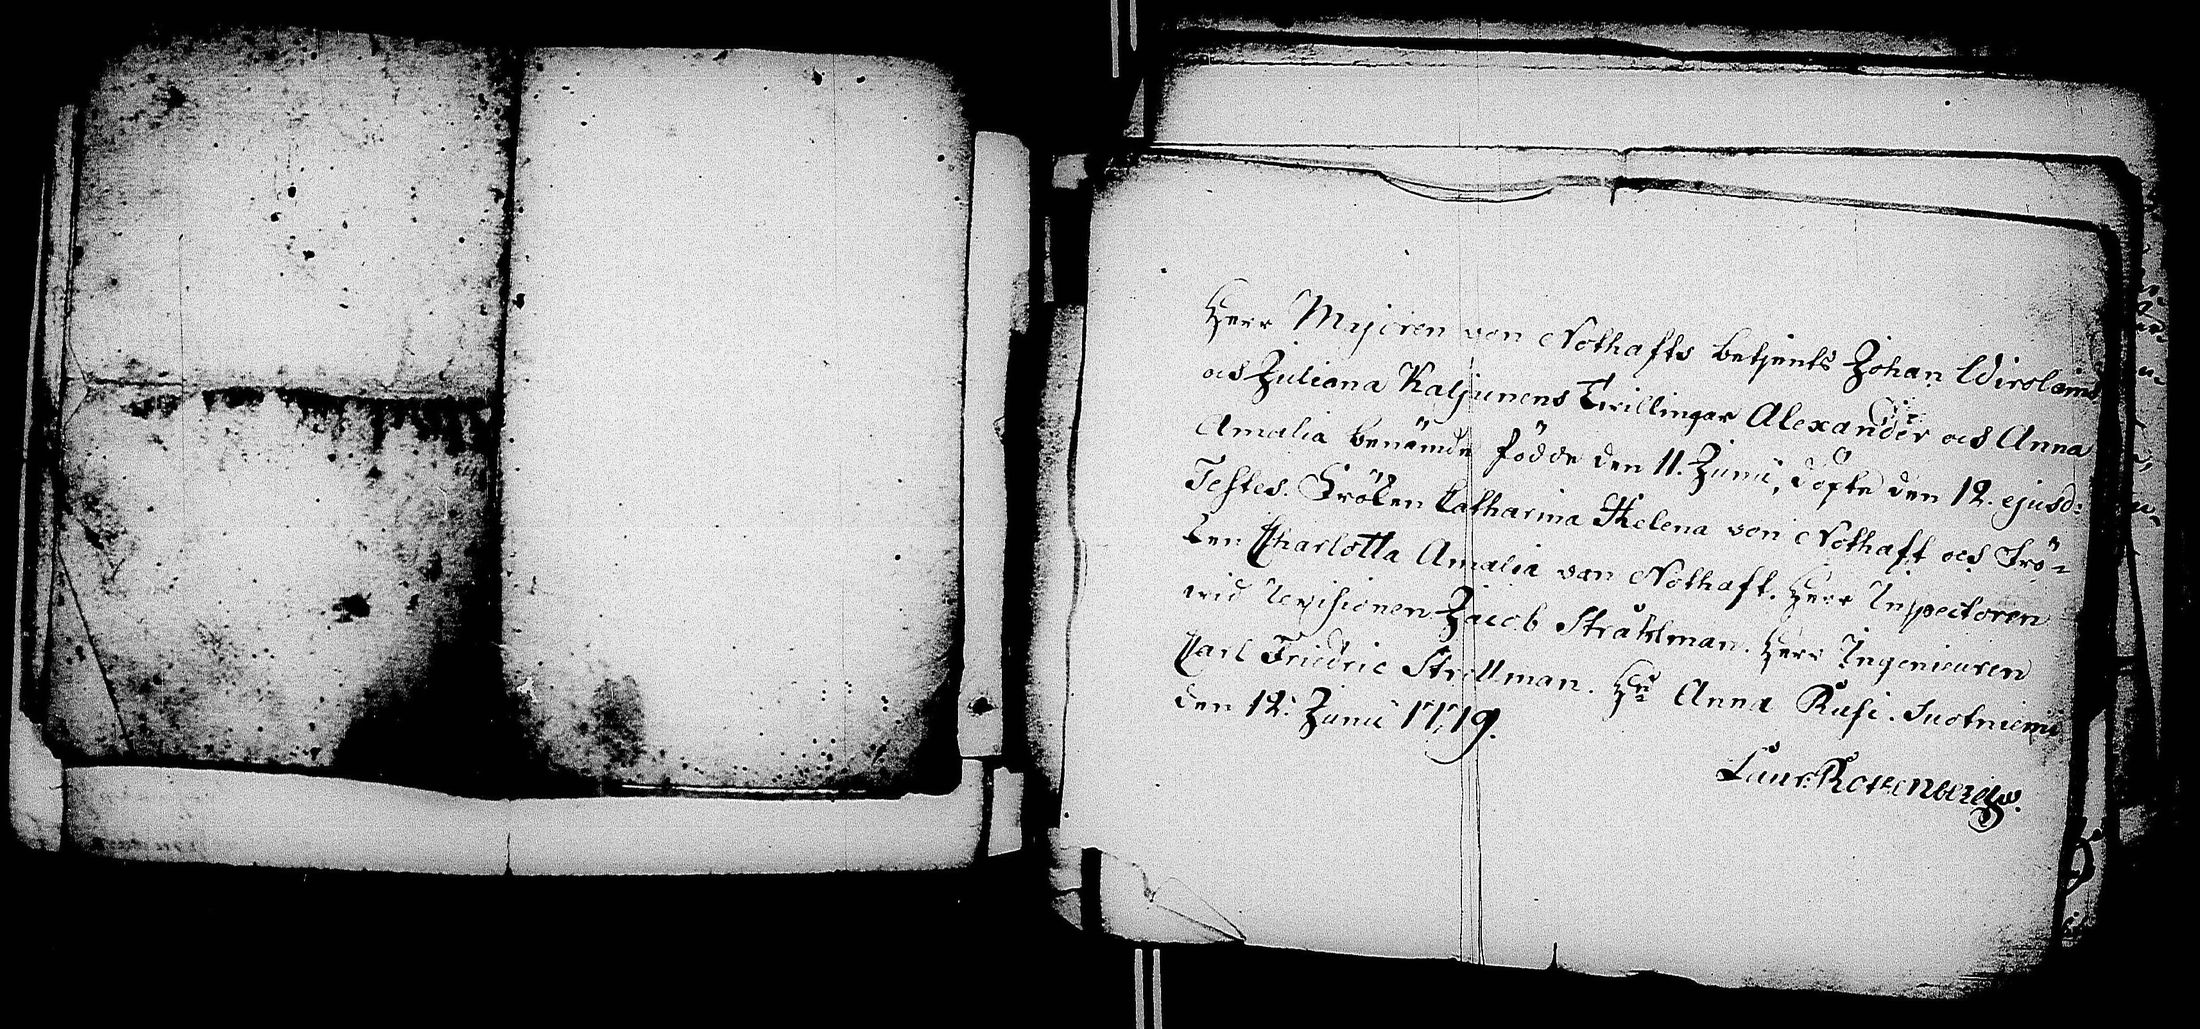 Herr Majoren von Nothafts betjents Johan Wirolains
och Juliana Kaljunens Twillingar Alexander och Anna
Amalia benämde födde den 11. Junii, döpte den 12. ejusd:
Testes. Fröken Catharina Helena von Nothaft och Frö-
ken Charlotta Amalia von Nothaft. Herr Inspectoren
wid Revisionen Jacob Stråhlman. Herr Ingenieuren
Carl Friedric Strållman. Hu Anna Rusi. Suotniemi
den 12. Junii 1779.
Laur. Rottenberg